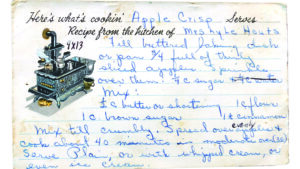 Here's what's cookin' Apple Crisp Serves
Recipe from the kitchen of Mrs
9x13 Fill buttered baking dish
or pan 3/4 full of thinly
sliced apples
over them: 1/2 c sugar
Mix:
c butter or shortening 1 c flour
1 c. brown sugar 1 t cinnamon
Mix till crumbly. Spread over apples &
cook about 40 minutes in moderate oven
Serve Plain, or with whipped cream, or
even ice cream.